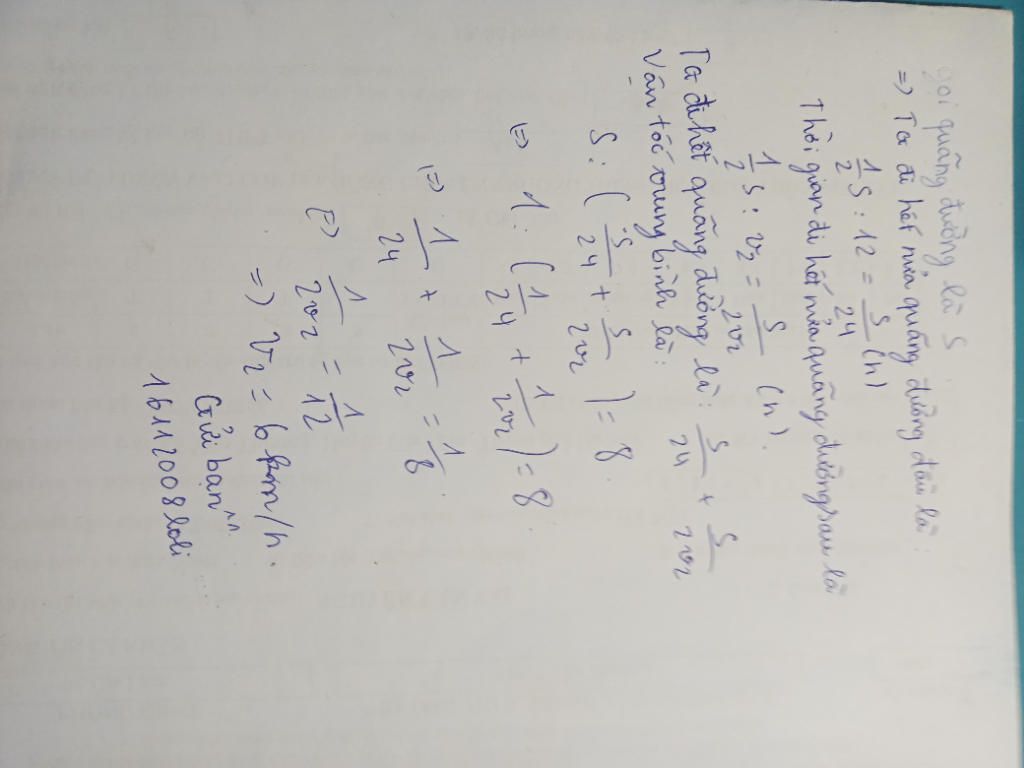 gọi quãng đường là S
=> Ta đi hết nửa quãng đường đầu là :
1/2 S : 12 = S/24 (h)
Thời gian đi hết nửa quãng đường sau là
1/2 S : v2 = S/2v2 (h)
Ta đi hết quãng đường là : S/24 + S/2v2
Vận tốc trung bình là :
S : ( S/24 + S/2v2 ) = 8
=> 1 : ( 1/24 + 1/2v2 ) = 8
=> 1/24 + 1/2v2 = 1/8
=> 1/2v2 = 1/12
=> v2 = 6 km/h
Gửi bạn
16112008loli